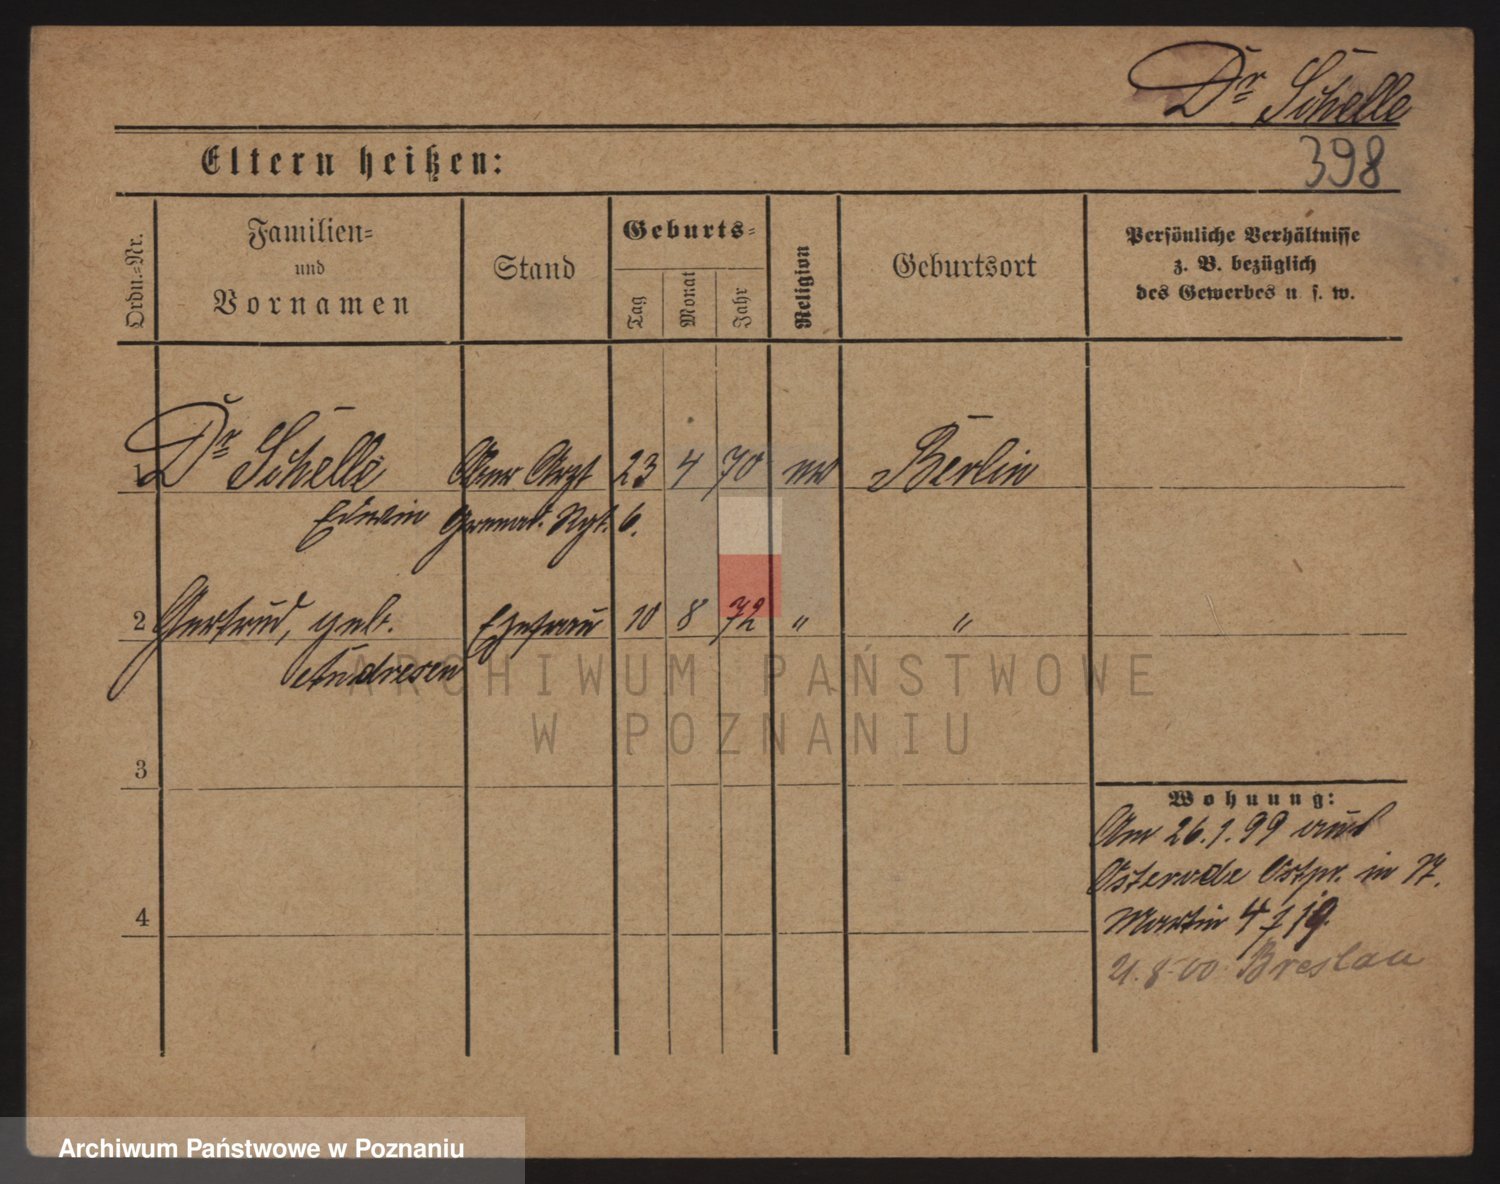 Dr Schelle
Eltern heißen:
398
Ordn.-Nr.
Familien-
und
Vornamen
Stand
Geburts-
Tag
Monat
Jahr
Religion
Geburtsort
Persönliche Verhältnisse
z. B. bezüglich
des Gewerbes u. s. w.
1 Dr Schelle Ober Arzt 23 4 70 ev Berlin
Edwin Grenad. Rgt. 6.
2 Gertrud, geb. Ehefrau 10 8 72 " "
Andresen
ARCHIWUM PAŃSTWOWE
W POZNANIU
3
Wohnung:
Am 26.1.99 aus
Osterode Ostpr. in St.
4
Martin
8.00 Breslau
Archiwum Państwowe w Poznaniu